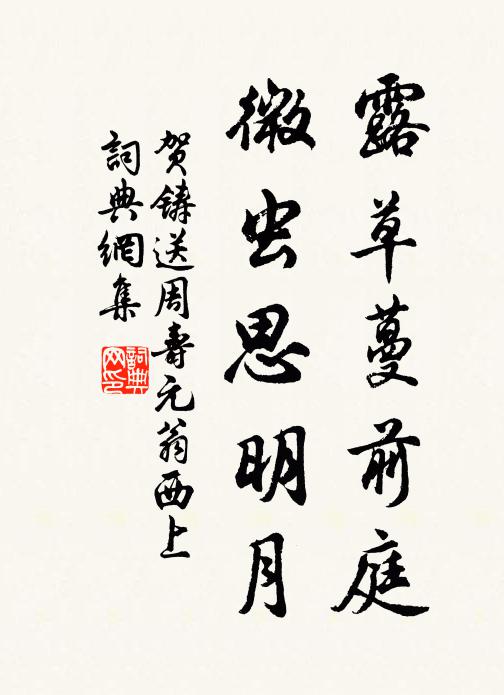 露草蔓前庭
微虫思明月
贺铸送周寿元翁西上
詞典網集
詞典网印